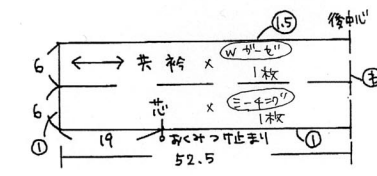 1.5
後中心
6
共衿 × Wガーゼ
1枚
6
芯 × ミーチング
1枚
1
19
おくみつけ止まり
1
52.5